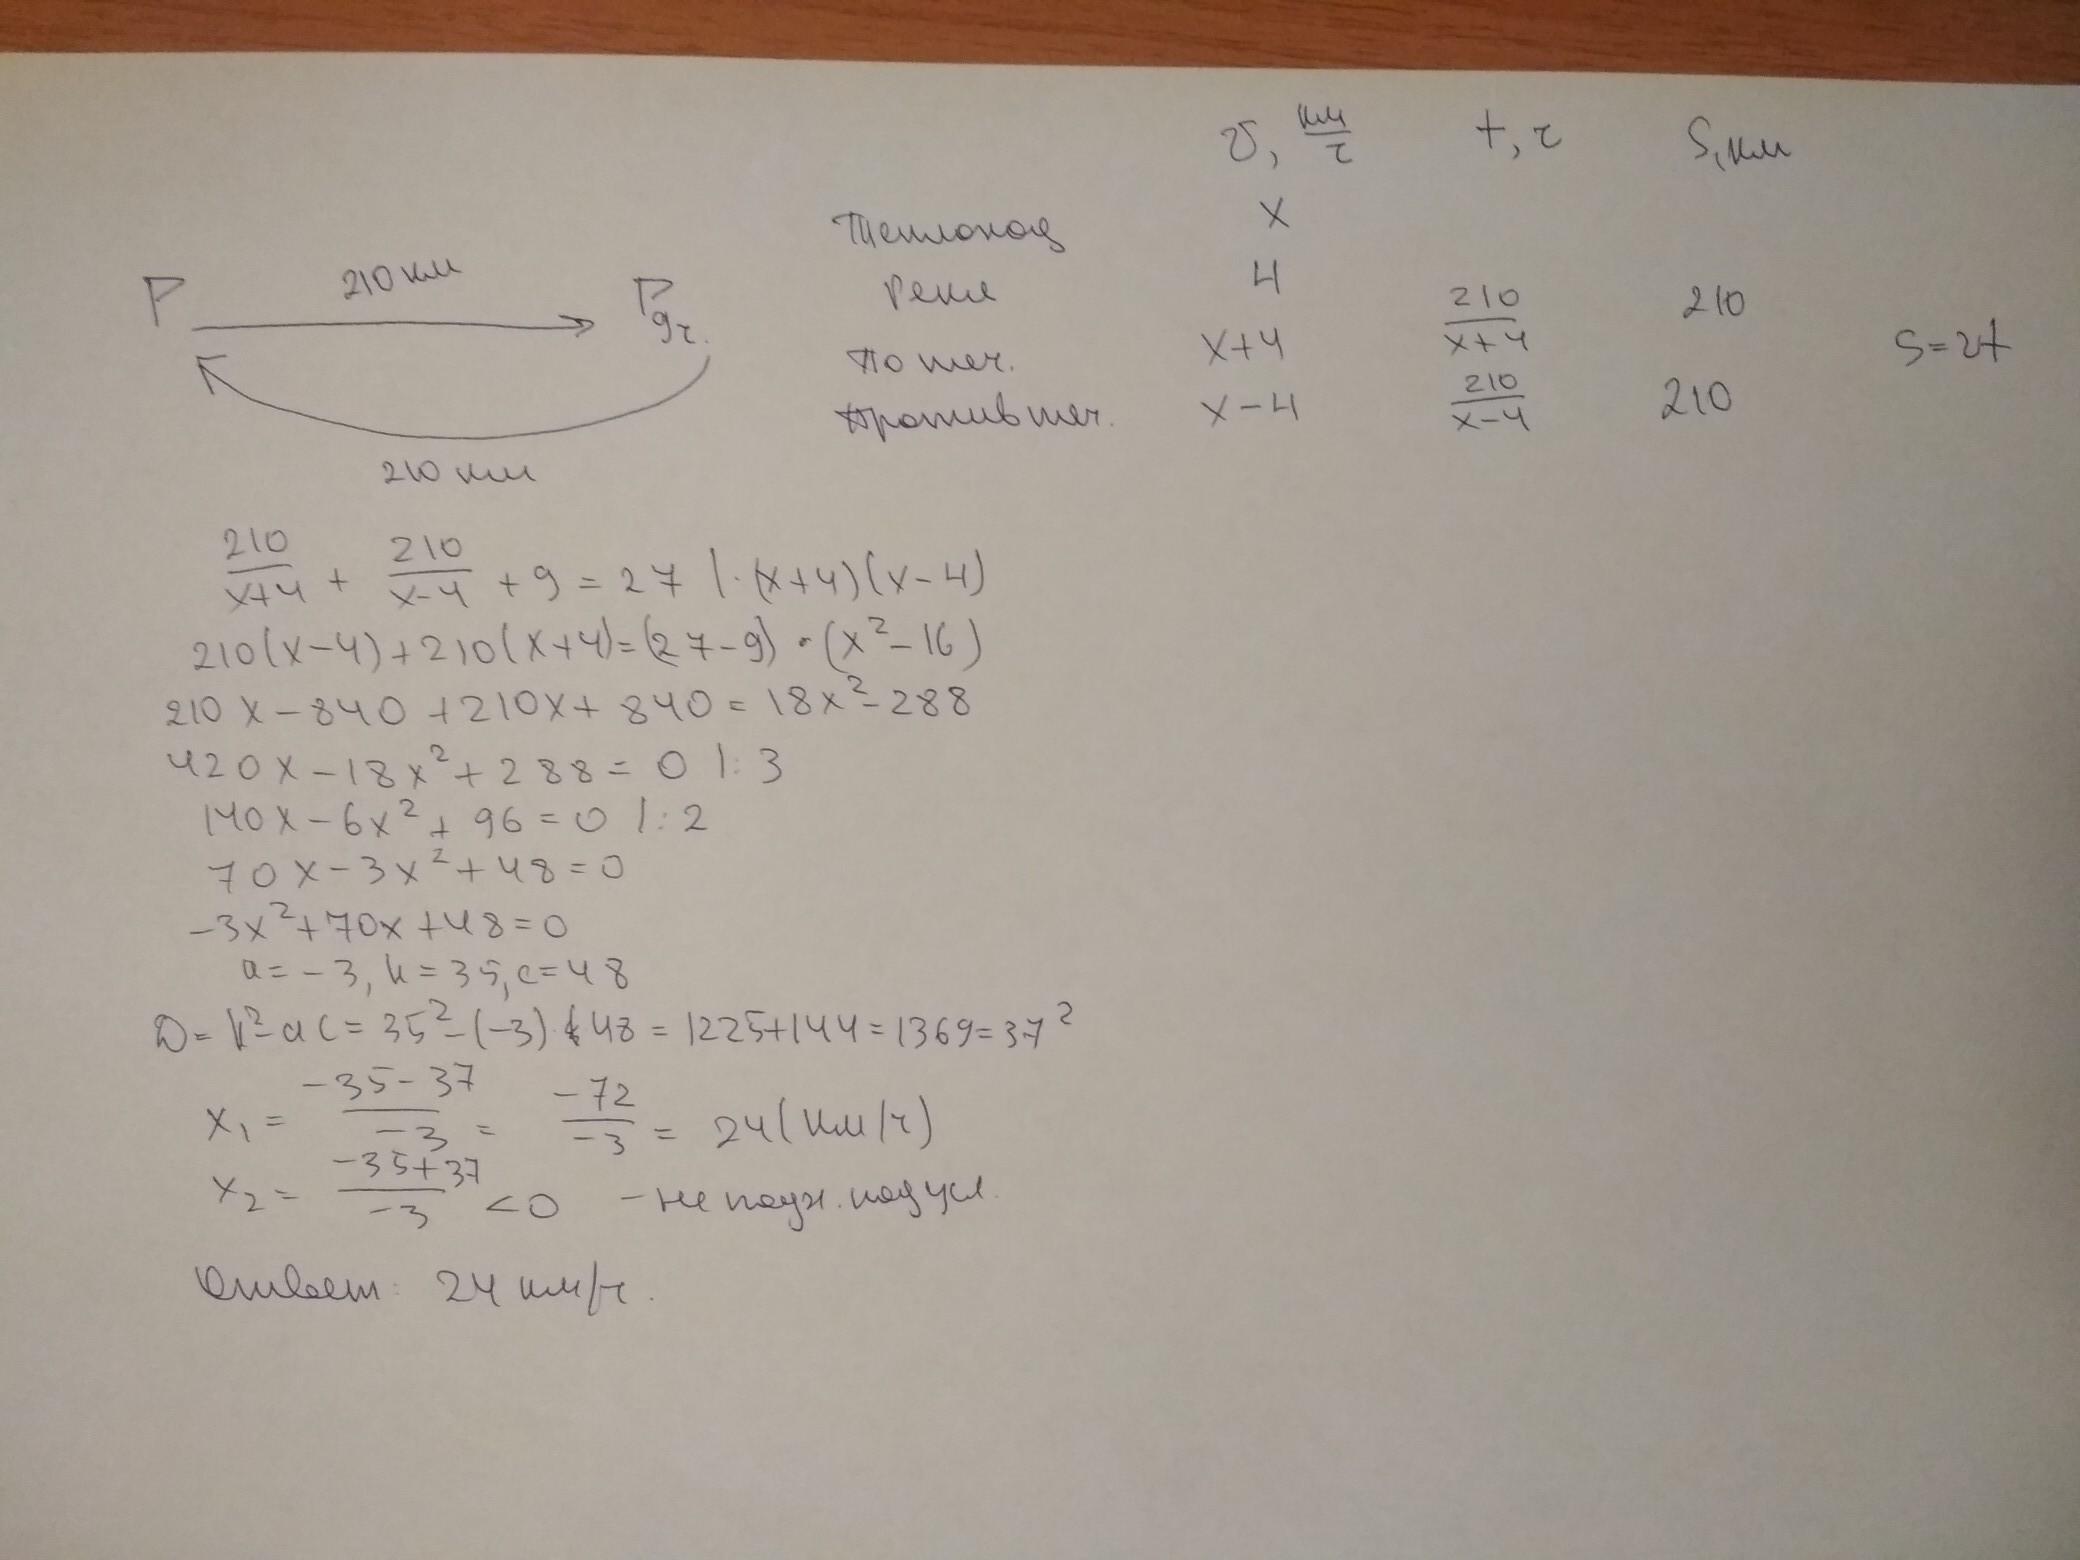 v, км/ч t, ч S, км
Теплоход x
река 4
По теч. x+4 210/(x+4) 210
Против теч. x-4 210/(x-4) 210
S=vt
P 210 км P 9ч.
210 км
210/(x+4) + 210/(x-4) + 9 = 27 |·(x+4)(x-4)
210(x-4)+210(x+4)=(27-9)·(x²-16)
210x-840+210x+840=18x²-288
420x-18x²+288=0 |:3
140x-6x²+96=0 |:2
70x-3x²+48=0
-3x²+70x+48=0
a=-3, k=35, c=48
D=k²-ac=35²-(-3)·48=1225+144=1369=37²
x₁=(-35-37)/(-3)=(-72)/(-3)=24(км/ч)
x₂=(-35+37)/(-3)<0 -не подх. под усл.
Ответ: 24 км/ч.